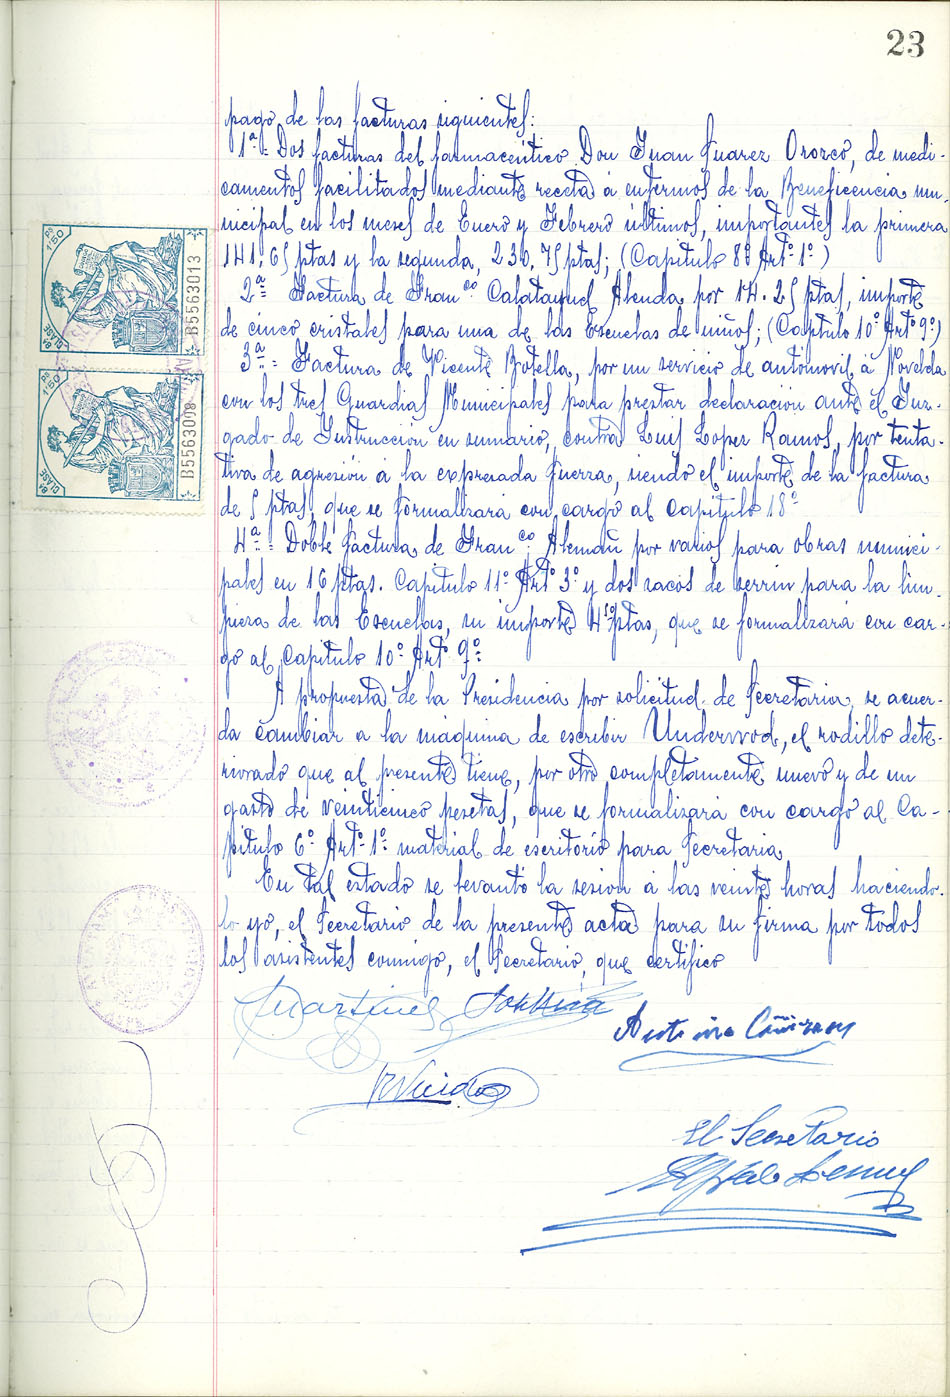 23
pago de las facturas siguientes:
1ª = Dos facturas del farmacéutico Don Juan Suarez Orozco, de medi-
camentos facilitados mediante receta á enfermos de la Beneficencia mu-
nicipal en los meses de Enero y Febrero últimos, importantes la primera
141.65 ptas y la segunda, 236.75 ptas; (Capitulo 8º Artº 1º)
2ª = Factura de Franco Calatayud Abenda por 14.25 ptas, importe
de cinco cristales para una de las Escuelas de niños; (Capitulo 10º Artº 9º)
3ª = Factura de Vicente Botella, por un servicio de automovil á Novelda
con los tres Guardias Municipales para prestar declaración ante el Juz-
gado de Instrucción en sumario, contra Luis Lopez Ramos, por tenta-
tiva de agresión á la expresada fuerza, siendo el importe de la factura
de 5 ptas, que se formalizará con cargo al Capitulo 18º
4ª = Doble factura de Franco Alemañ por varios para obras munici-
pales en 16 ptas. Capitulo 11º Artº 3º y dos sacos de serrin para la lim-
pieza de las Escuelas, su importe 4'50 ptas, que se formalizará con car-
go al Capitulo 10º Artº 9º =
A propuesta de la Presidencia por solicitud de Secretaria, se acuer-
da cambiar a la máquina de escribir Underwod, el rodillo dete-
riorado que al presente tiene, por otro completamente nuevo y de un
gasto de veinticinco pesetas, que se formalizará con cargo al Ca-
pitulo 6º Artº 1º material de escritorio para Secretaria
En tal estado se levantó la sesión á las veinte horas haciendo-
lo yo, el Secretario de la presente acta para su firma por todos
los asistentes conmigo, el Secretario, que certifico
Martinez
Antonio Cañizares
El Secretario
PS 1'50
8ª CLASE
B5563013
PS 1'50
8ª CLASE
B5563008